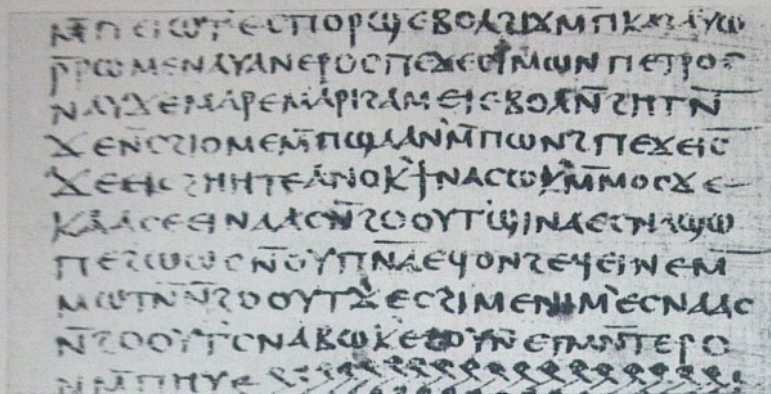 ⲘⲠⲈⲒⲰⲦ ⲈⲤⲠⲞⲢϢ ⲈⲂⲞⲖ ϨⲒϪⲘ ⲠⲔⲀϨ ⲀⲨⲰ
ⲢⲢⲰⲘⲈ ⲚⲀⲨ ⲀⲚ ⲈⲢⲞⲤ ⲠⲈϪⲈ ⲤⲒⲘⲰⲚ ⲠⲈⲦⲢⲞⲤ
ⲚⲀⲨ ϪⲈ ⲘⲀⲢⲈ ⲘⲀⲢⲒϨⲀⲘ ⲈⲒ ⲈⲂⲞⲖ ⲚϨⲎⲦⲚ
ϪⲈ ⲚⲤϨⲒⲞⲘⲈ ⲘⲠϢⲀ ⲀⲚ ⲘⲠⲰⲚϨ ⲠⲈϪⲈ ⲒⲤ
ϪⲈ ⲈⲒⲤϨⲎⲎⲦⲈ ⲀⲚⲞⲔ ϮⲚⲀⲤⲰⲔ ⲘⲘⲞⲤ ϪⲈ
ⲔⲀⲀⲤ ⲈⲈⲒⲚⲀⲀⲤ ⲚϨⲞⲞⲨⲦ ϢⲒⲚⲀ ⲈⲤⲚⲀϢⲰ
ⲠⲈ ϨⲰⲰⲤ ⲚⲞⲨⲠⲚⲀ ⲈϤⲞⲚϨ ⲈϤⲈⲒⲚⲈ Ⲙ
ⲘⲰⲦⲚ ⲚϨⲞⲞⲨⲦ ϪⲈ ⲤϨⲒⲘⲈ ⲚⲒⲘ ⲈⲤⲚⲀⲀⲤ
ⲚϨⲞⲞⲨⲦ ⲤⲚⲀⲂⲰⲔ ⲈϨⲞⲨⲚ ⲈⲦⲘⲚⲦⲈⲢⲞ
ⲚⲘⲠⲎⲨⲈ